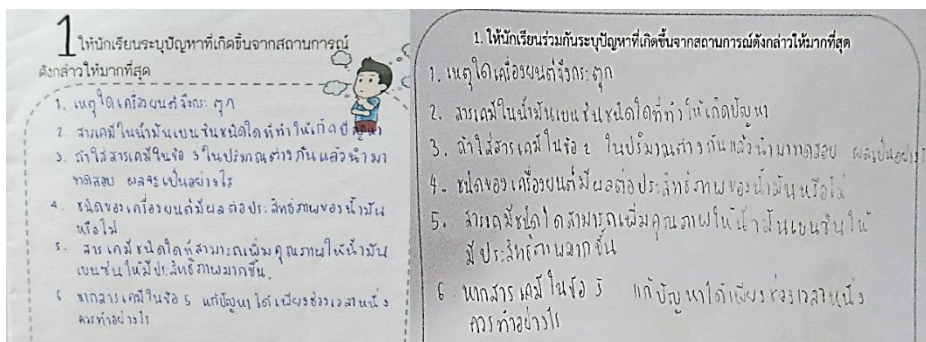 1 ให้นักเรียนระบุปัญหาที่เกิดขึ้นจากสถานการณ์
ดังกล่าวให้มากที่สุด
1. เหตุใดเครื่องยนต์จึงกระตุก
2. สารเคมีในน้ำมันเบนซินชนิดใดที่ทำให้เกิดปัญหา
3. ถ้าใส่สารเคมีในข้อ 2 ในปริมาณต่างกันแล้วนำมา
ทดสอบ ผลจะเป็นอย่างไร
4. ชนิดของเครื่องยนต์มีผลต่อประสิทธิภาพของน้ำมัน
หรือไม่
5. สารเคมีชนิดใดที่สามารถเพิ่มคุณภาพให้น้ำมัน
เบนซินให้มีประสิทธิภาพมากขึ้น
6 หากสารเคมีในข้อ 5 แก้ปัญหาได้เพียงช่วงเวลาหนึ่ง
ควรทำอย่างไร
1. ให้นักเรียนร่วมกันระบุปัญหาที่เกิดขึ้นจากสถานการณ์ดังกล่าวให้มากที่สุด
1. เหตุใดเครื่องยนต์จึงกระตุก
2. สารเคมีในน้ำมันเบนซินชนิดใดที่ทำให้เกิดปัญหา
3. ถ้าใส่สารเคมีในข้อ 2 ในปริมาณต่างกันแล้วนำมาทดสอบ ผลเป็นอย่างไร
4. ชนิดของเครื่องยนต์มีผลต่อประสิทธิภาพของน้ำมันหรือไม่
5. สารเคมีชนิดใดสามารถเพิ่มคุณภาพให้น้ำมันเบนซินให้
มีประสิทธิภาพมากขึ้น
6. หากสารเคมีในข้อ 5 แก้ปัญหาได้เพียงช่วงเวลาหนึ่ง
ควรทำอย่างไร